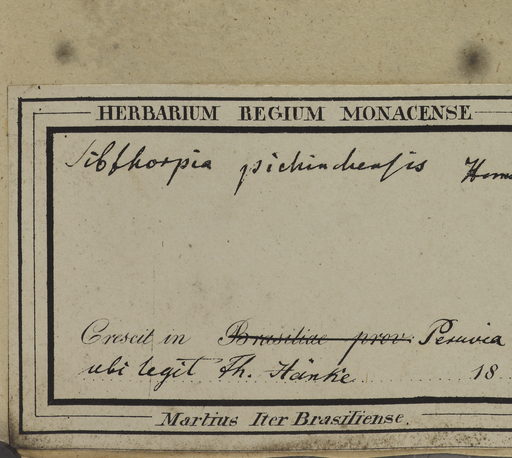 HERBARIUM REGIUM MONACENSE
Sibthorpia pichinchensis
Crescit in Brasiliae prov. Peruvia
ubi legit Th. Hänke 18
Martius Iter Brasiliense.